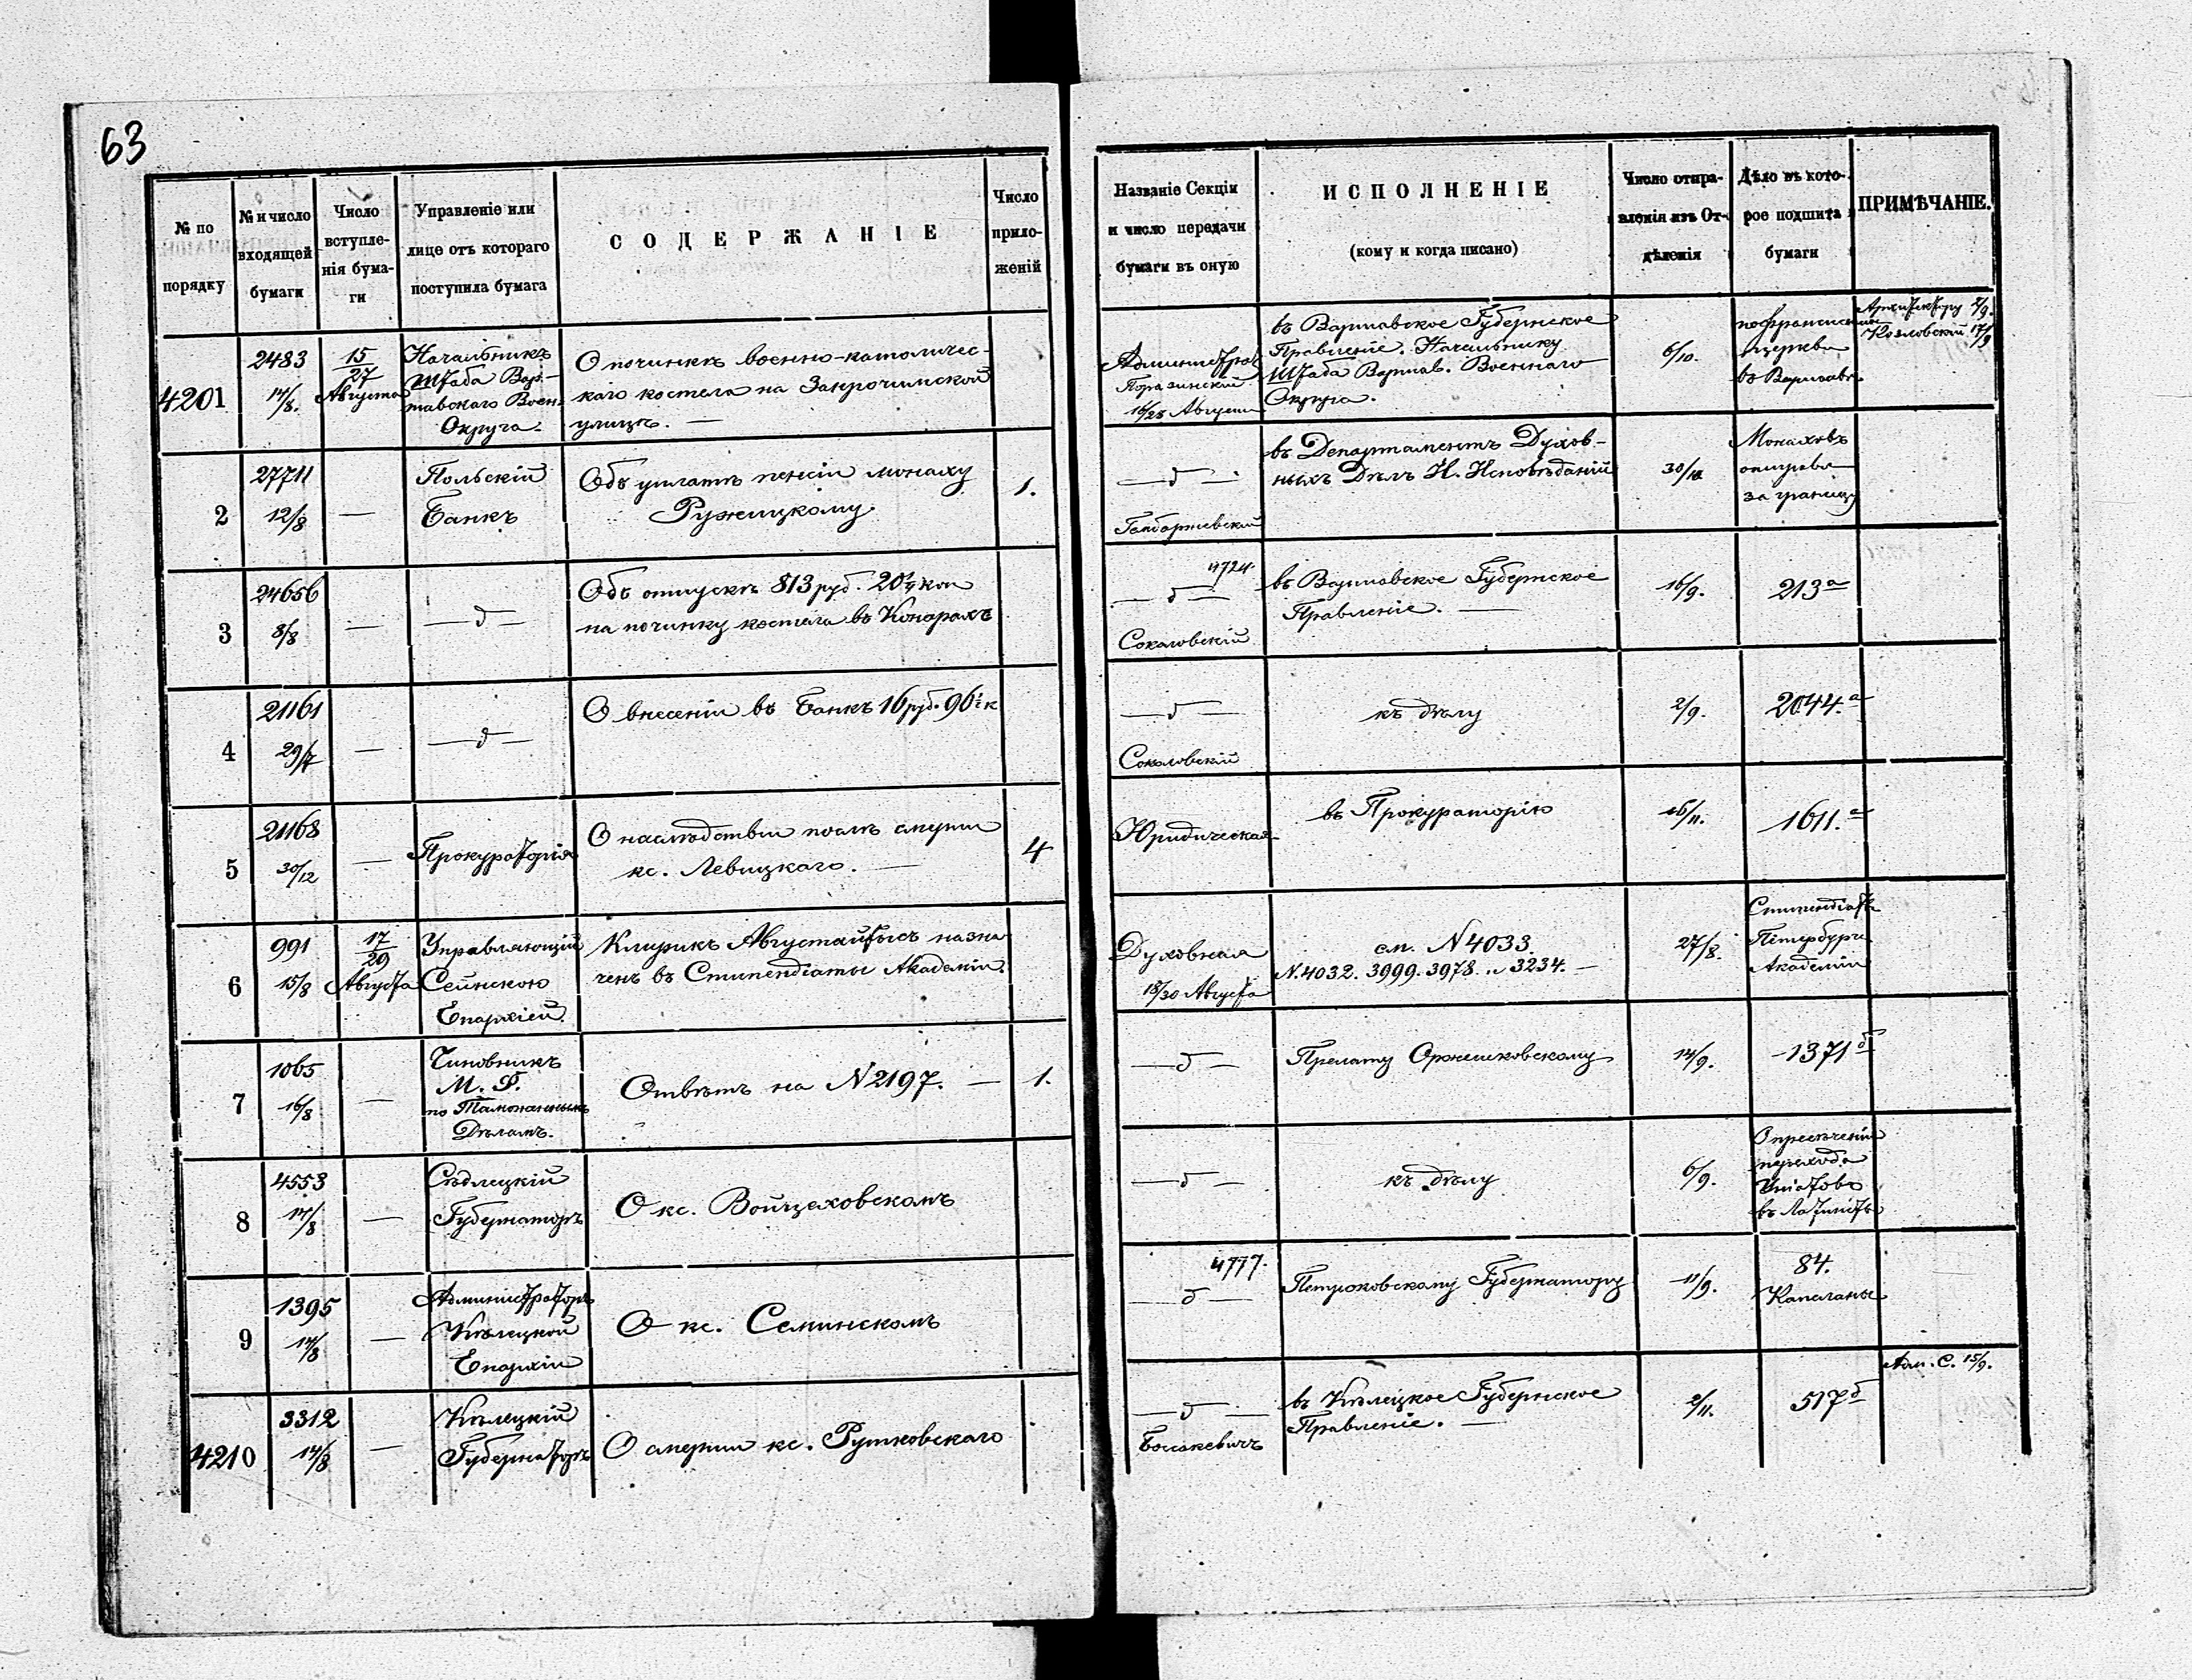 63
№ по порядку
№ и число входящей бумаги
Число вступленія бумаги
Управленіе или лице отъ котораго поступила бумага
СОДЕРЖАНІЕ
Число приложеній
Названіе Секціи и число передачи бумаги въ оную
ИСПОЛНЕНІЕ
(кому и когда писано)
Число отправленія изъ Отдѣленія
Дѣло въ которое подшита бумаги
ПРИМѢЧАНІЕ.
4201
2483
14/8.
15/27
Августа
Начальникъ
Штаба Вар-
шавскаго Воен.
Округа.
О починкѣ военно-католичес-
каго костела на Закрочимской
улицѣ. —
16/28 Августа
въ Варшавское Губернское
Правленіе. Начальнику
Штаба Варшав. Военнаго
Округа.
6/10.
церква
въ Варшавѣ.
Архитектору 2/9.
Козловскій 17/9
2
27711
12/8
—
Польскій
Банкъ
Объ уплатѣ пенсіи монаху
Ружицкому.
1.
— д —
въ Департаментъ Духов-
ныхъ Дѣлъ И. Исповѣданій
30/10
Монаховъ
за границу
3
24656
8/8
—
— д —
Объ отпускѣ 813 руб. 20½ коп
на починку костела въ Конарахъ
4724.
— д —
Соколовскій
въ Варшавское Губернское
Правленіе. —
16/9.
213 а
4
21161
29/7
—
— д —
О внесеніи въ Банкъ 16 руб. 96½ к
— д —
Соколовскій
къ дѣлу
2/9.
2044. а
5
21168
30/12
—
Прокураторія
О наслѣдствѣ послѣ смерти
кс. Левицкаго. —
4
Юридическая
въ Прокураторію
16/11.
1611. а
6
991
15/8
17/29
Августа
Управляющій
Сейнскою
Епархіей.
Клирикъ Августайтысъ назна
ченъ въ Стипендіаты Академіи.
Духовная
18/30 Августа
см. N 4033.
N. 4032. 3999. 3978. и 3234. —
27/8.
Стипендіаты
Петербург.
Академіи
7
1065
16/8
—
Чиновникъ
М. Ф.
по Таможеннымъ
Дѣламъ.
Отвѣтъ на N 2197. —
1.
— д —
Прелату Оржешковскому
14/9.
1371 б
8
4553
14/8
—
Сѣдлецкій
Губернаторъ
О кс. Войцеховскомъ
— д —
къ дѣлу
6/9.
О пресѣченіи
перехода
Уніатовъ
въ Латинство
9
1395
14/8
—
Администраторъ
Кѣлецкой
Епархіи
О кс. Семинскомъ
4777.
— д —
Петроковскому Губернатору
11/9.
84.
Капеланы
4210
3312
14/8
—
Кѣлецкій
Губернаторъ
О смерти кс. Рутковскаго
— д —
въ Кѣлецкое Губернское
Правленіе. —
2/11.
517 б
Адм. С. 15/9.